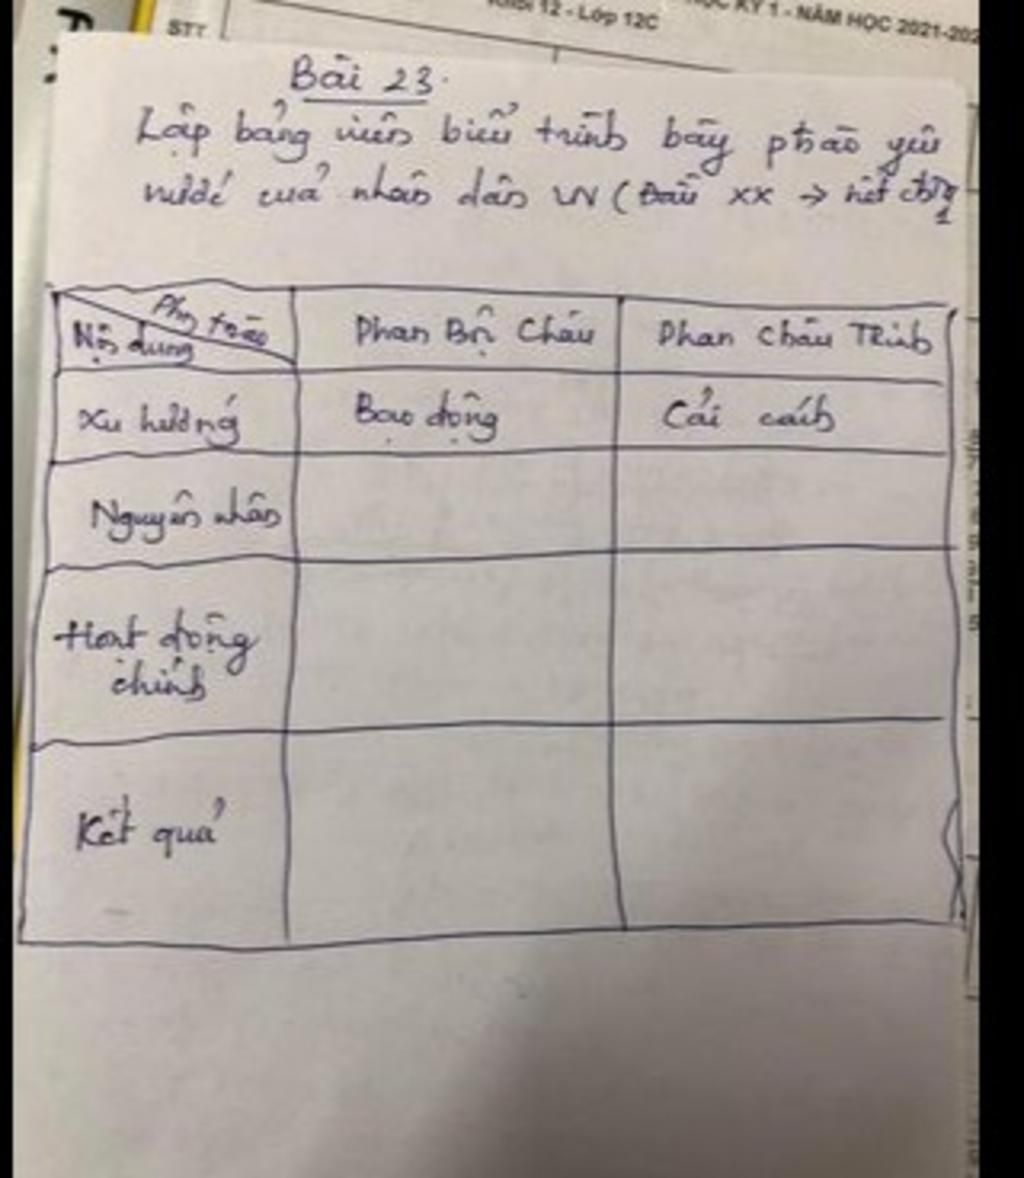 STT
12 - Lớp 12C
KỲ 1 - NĂM HỌC 2021-202
Bài 23.
Lập bảng niên biểu trình bày ptrào yêu
nước của nhân dân VN (Đầu XX → hết ctrg
1
Phg trào
Nội dung
Phan Bội Châu
Phan Châu Trinh
Xu hướng
Bạo động
Cải cách
Nguyên nhân
Hoạt động
chính
Kết quả